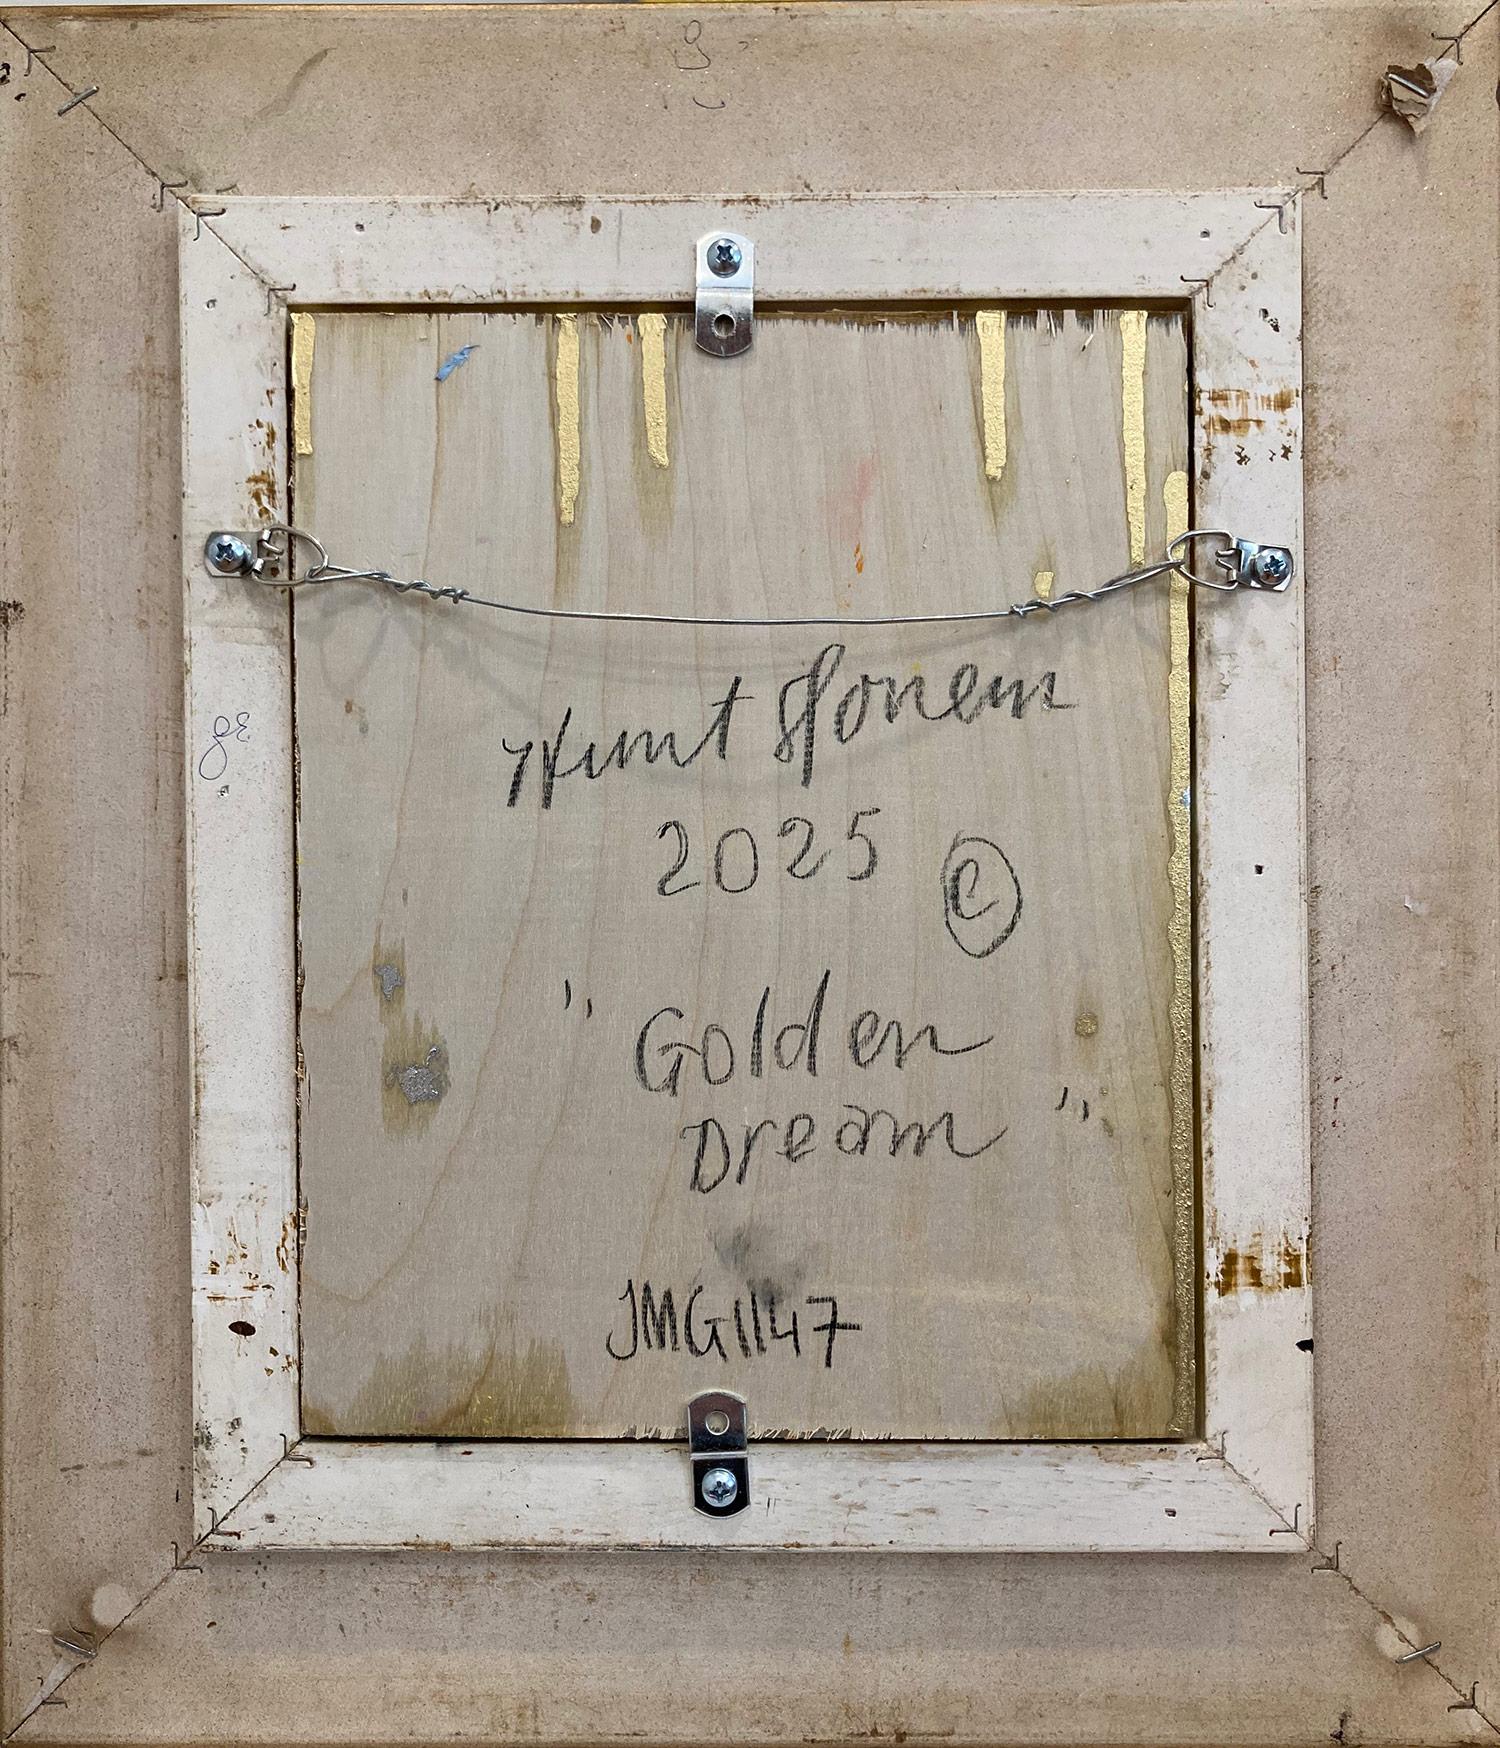 Hunt Slonem
2025 ©
"Golden
Dream"
JMG1147